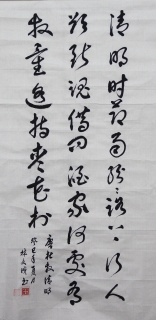 清明时节雨纷纷路上行人
欲断魂借问酒家何处有
牧童遥指杏花村
唐杜牧清明
癸巳年夏月